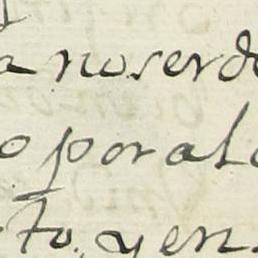 a no serd
o por al
to, y en